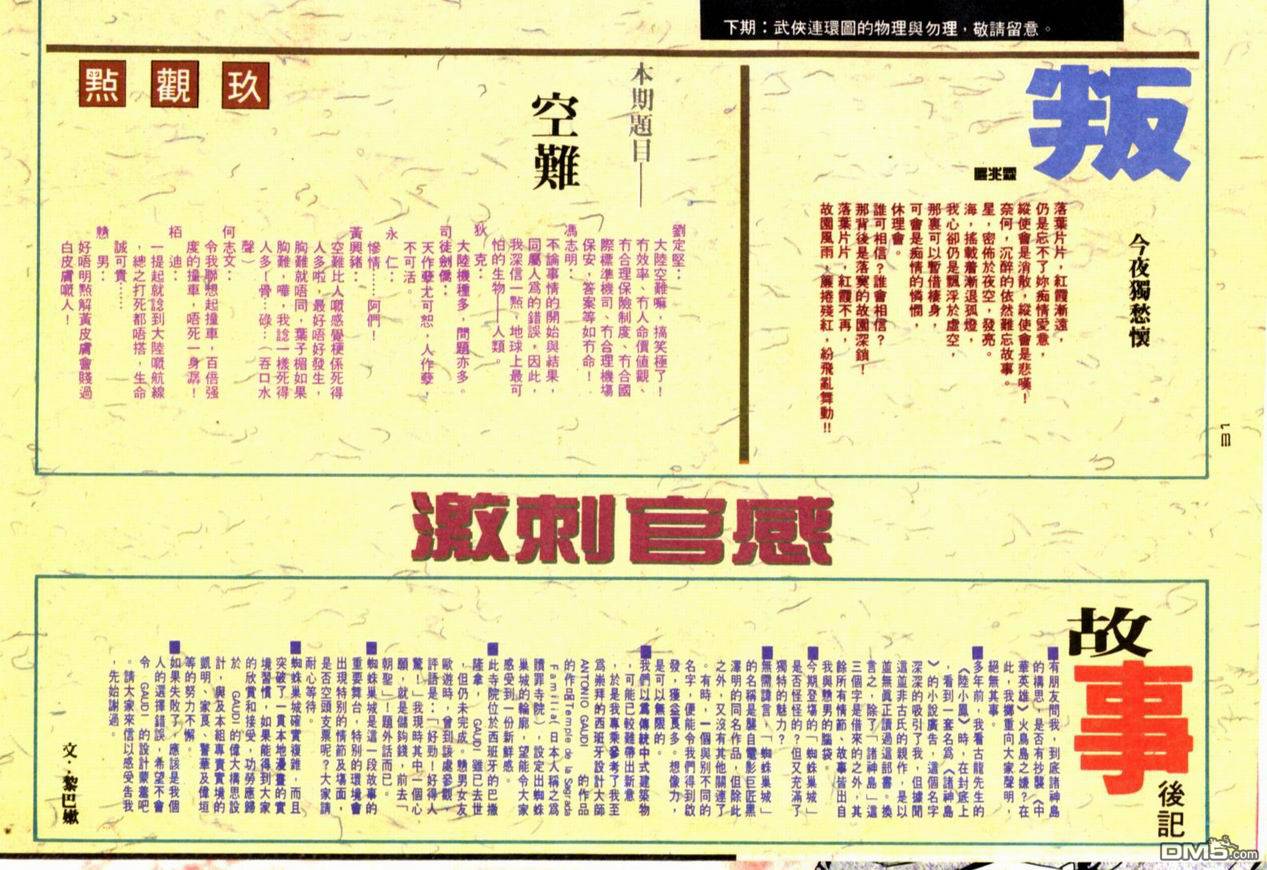 下期：武俠連環圖的物理與勿理，敬請留意。
叛
今夜獨愁懷
落葉片片，紅霞漸遠，
仍是忘不了妳痴情愛意，
縱使會是消散，縱使會是悲嘆！
奈何，沉醉的依然難忘故事。
星，密佈於夜空，發亮。
海，搖載着漸退孤燈，
我心卻仍是飄浮於虛空，
那裏可以暫借棲身，
可會是痴情的憐憫，
休理會。
誰可相信？誰會相信？
那背後是落寞的故園深鎖！
落葉片片，紅霞不再，
故園風雨，簾捲殘紅，紛飛亂舞動!!
31
玖觀點
本期題目——
空難
劉定堅：
大陸空難嘛，搞笑極了！
冇效率、冇人命價值觀、
冇合理保險制度、冇合國
際標準機司、冇合理機塲
保安，答案等如冇命！
馮志明：
不論事情的開始與結果，
同屬人為的錯誤，因此，
我深信一點，地球上最可
怕的生物——人類。
狄　克：
大陸機種多，問題亦多。
司徒劍僑：
天作孽尤可恕，人作孽，
不可活。
永　仁：
慘情……阿們！
黃興豬：
空難比人嘅感覺梗係死得
人多啦，最好唔好發生，
胸難就唔同，葉子楣如果
胸難，嘩，我諗一樣死得
人多！骨…碌…（吞口水
聲）
何志文：
令我聯想起撞車，百倍强
度的撞車，唔死一身潺！
栢　迪：
一提起就諗到大陸嘅航線
，總之打死都唔搭，生命
誠可貴……
戇　男：
好唔明點解黃皮膚會賤過
白皮膚嘅人！
激刺官感
故事後記
■有朋友問我，到底諸神島
的構思，是否有抄襲《中
華英雄》火鳥島之嫌？在
此，我擲重向大家聲明，
絕無其事。
■多年前，我看古龍先生的
《陸小鳳》時，在封底上
，看到一套名為《諸神島
》的小說廣告，這個名字
深深的吸引了我，但據聞
這並非古氏的親作，是以
並無眞正讀過這部書。換
言之，除了「諸神島」這
三個字是借來的之外，其
餘所有情節、故事皆出自
我與戇男的腦袋。
■今期登塲的「蜘蛛巢城」
是否怪怪的？但又充滿了
獨特的魅力？
■無需諱言，「蜘蛛巢城」
的名稱是襲自電影巨匠黑
澤明的同名作品，但除此
之外，又沒有其他關連了
。有時，一個與別不同的
名字，便能令我們得到啟
發，獲益良多。想像力，
是可以無限的。
■我們以為傳統中式建築物
，可能已較難帶出新意
，於是我專乘參考了我至
為崇拜的西班牙設計大師
ANTONIO GAUDI 的作品
的作品Temple de la Sagrada
Familia（日本人稱之為
贖罪寺院），設定出蜘蛛
巢城的輪廓，望能令大家
感受到一份新鮮感。
■此寺院位於西班牙的巴撒
隆拿，GAUDI 雖已去世
，但仍未完成。戇男女友
歐遊時，曾到該處參觀，
評語是：「好勁！好得人
驚！」我現時其中一個心
願，就是儲夠錢，前去「
朝聖」！題外話而已。
■蜘蛛巢城是這一段故事的
重要舞台，特別的環境會
出現特別的情節及塲面，
是否空頭支票呢？大家請
耐心等待。
■蜘蛛巢城確實複雜，而且
突破了一貫本地漫畫的實
境習慣，如果能得到大家
的欣賞和接受，功勞應歸
於 GAUDI 的偉大構思設
計，與及本組專責實境的
凱明、家良、警華及偉垣
等的努力不懈。
■如果失敗了，應該是我個
人的選擇錯誤，希望不會
令 GAUDI 的設計蒙羞吧
。請大家來信以感受告我
，先始謝過。
文：黎巴嫩
DM5.com